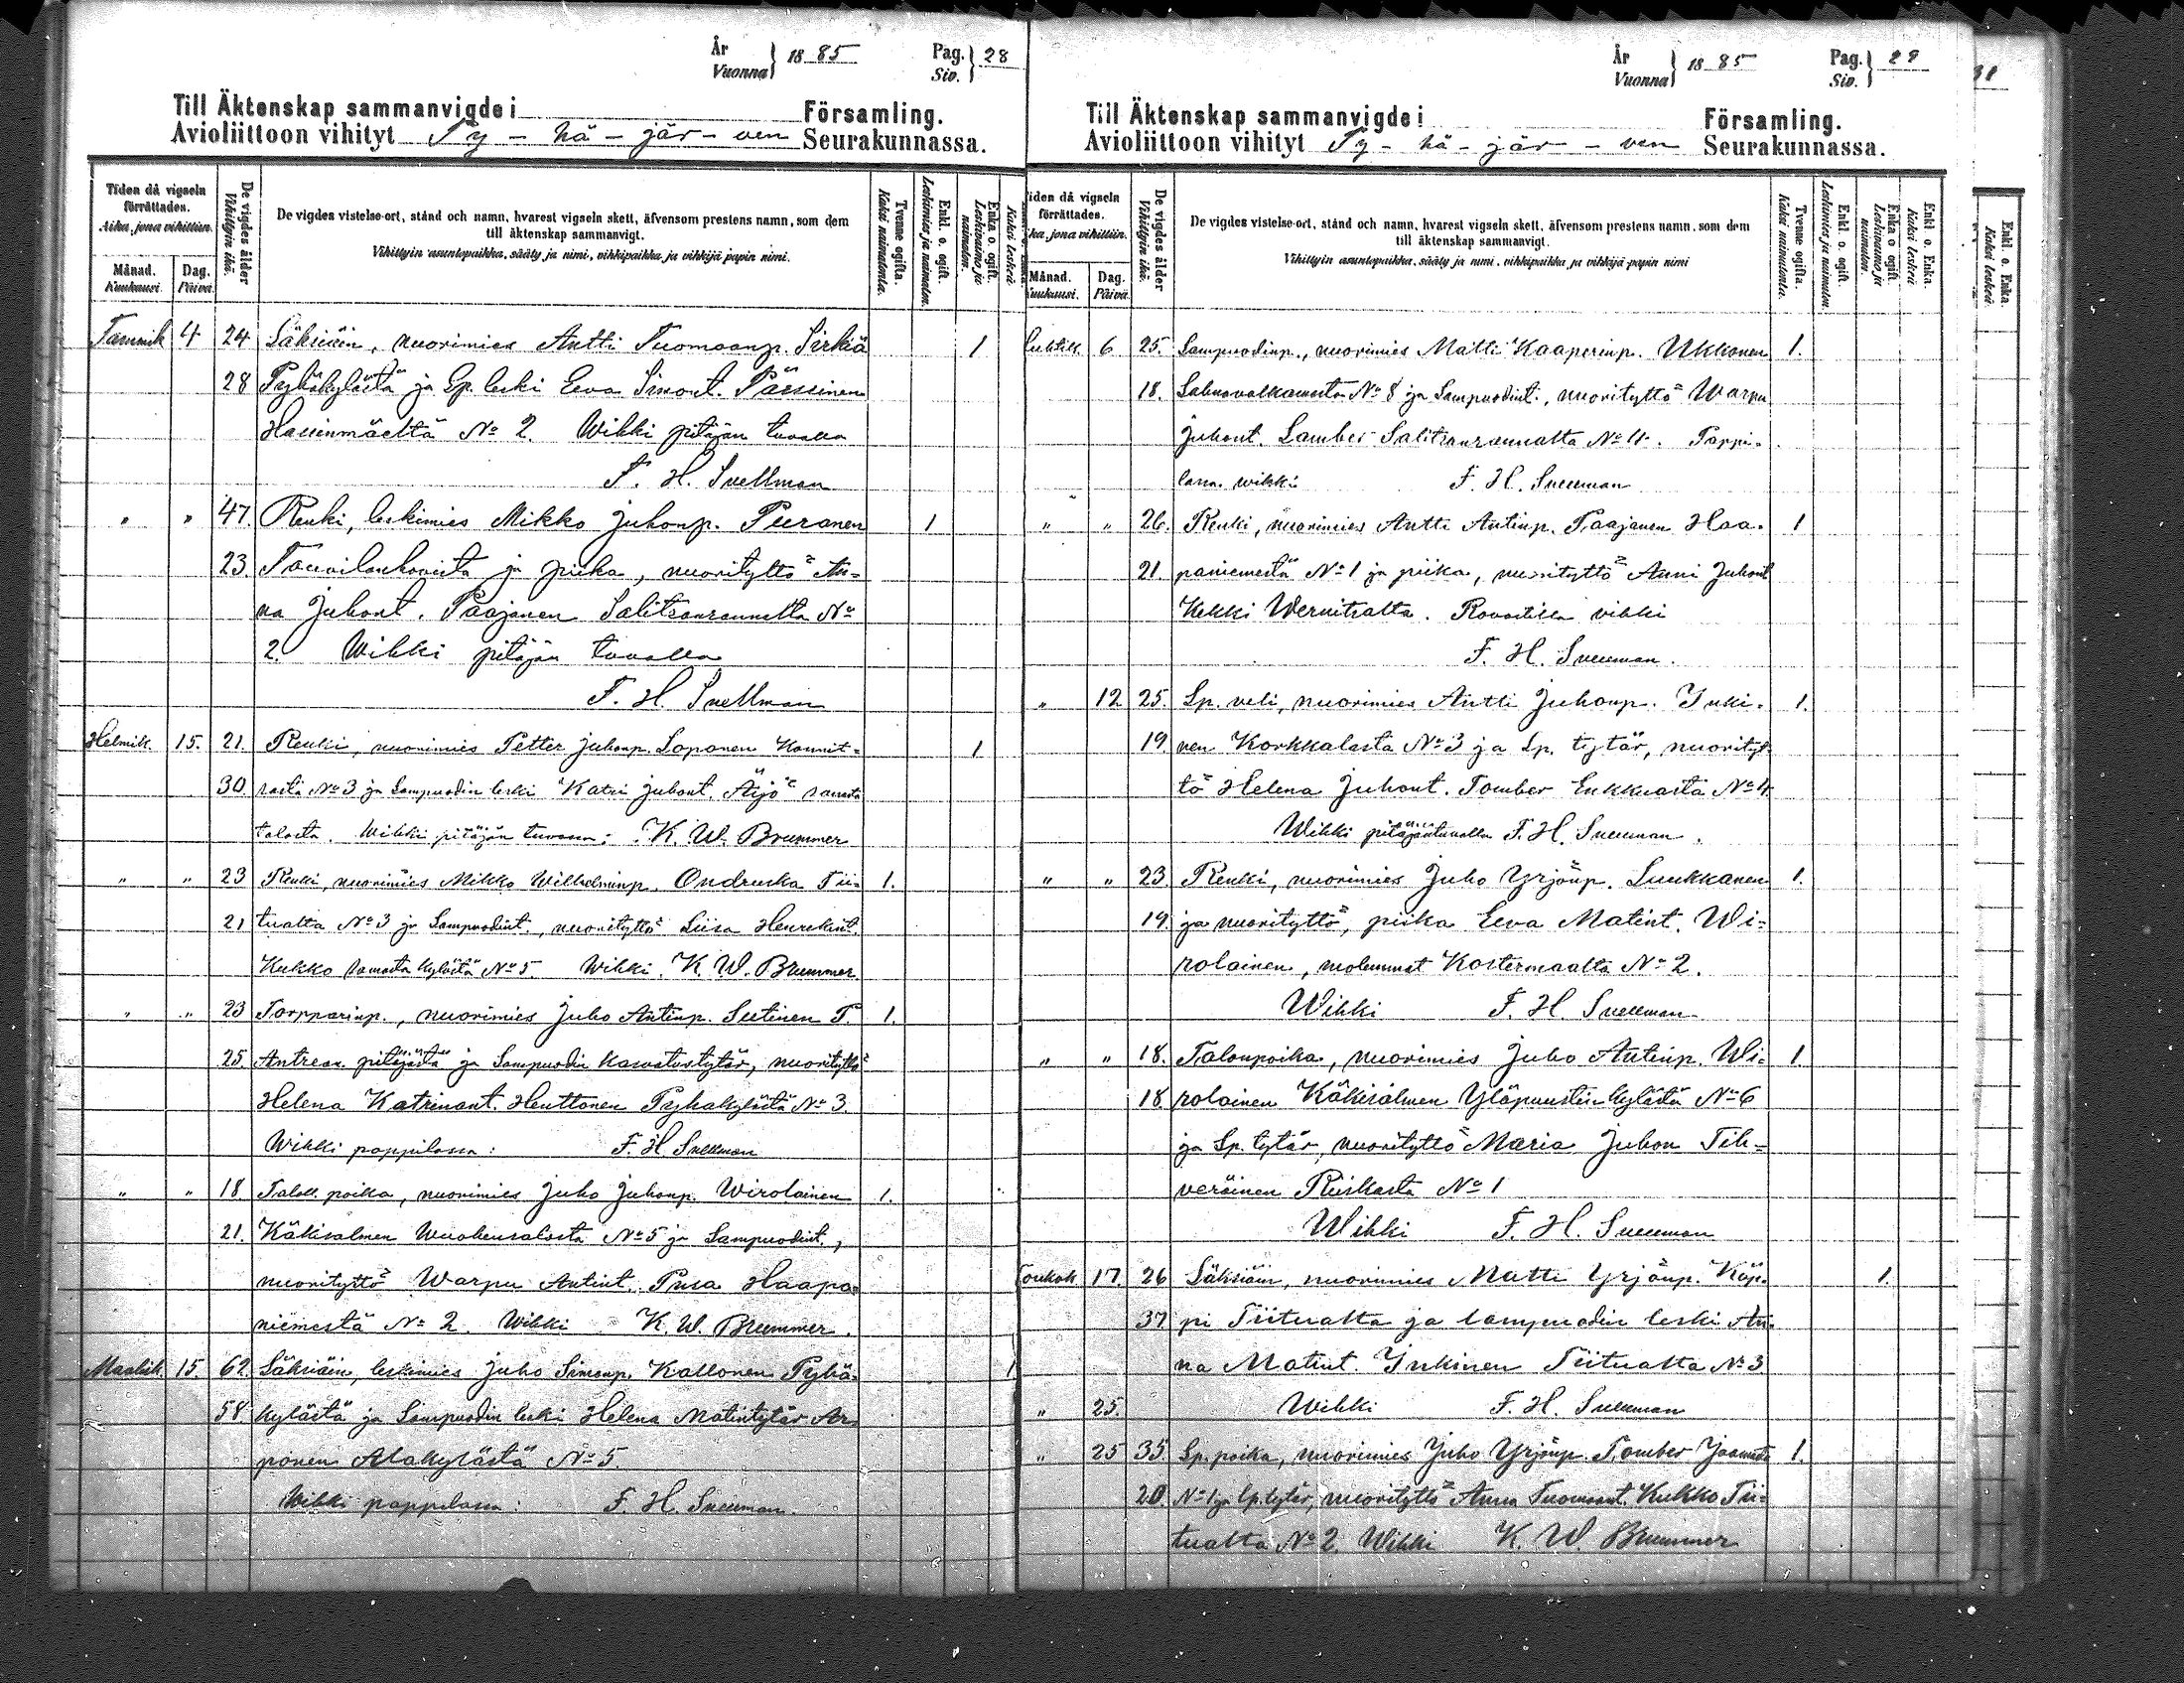 År
Vuonna 18 85 Pag. Siv. 28
Till Äktenskap sammanvigde i Församling.
Avioliittoon vihityt Py - hä - jär - ven Seurakunnassa.
Tiden då vigseln förrättades.
Aika, jona vihittiin.
Månad. Kuukausi.
Dag. Päivä.
De vigdes ålder
Vihittyin ikä.
De vigdes vistelse-ort, stånd och namn, hvarest vigseln skett, äfvensom prestens namn, som dem
till äktenskap sammanvigt.
Vihittyin asuntopaikka, sääty ja nimi, vihkipaikka ja vihkijä papin nimi.
Tvenne ogifta.
Kaksi naimatonta.
Enkl. o. ogift.
Leskimies ja naimaton.
Enka o. ogift.
Leskivaimo ja naimaton.
Kaksi leskeä
Tammik 4 24 Säksiäin, nuorimies Antti Tuomaanp. Sirkiä 1
28 Pyhäkylästä ja Lp. leski Eeva Simont. Pässinen
Hassinmäeltä No 2. Wihki pitäjän tuvalla
F. H. Snellman
" " 47. Renki, leskimies Mikko Juhonp. Puranen 1
23. ja piika, nuorityttö An-
na Juhont. Paajanen Salitsanrannalta No
2. Wihki pitäjän tuvalla
F. H. Snellman
Helmik. 15. 21. Renki, nuorimies Petter Juhonp. Loponen Konnit-
30 sasta No 3 ja Lampuodin leski Katri Juhont. Äijö samasta
talosta. Wihki pitäjän tuvassa: K. W. Brummer
" " 23 Renki, nuorimies Mikko Wilhelminp. Ondruska Tii- 1.
21 tualta No 3 ja Lampuodint., nuorityttö Liisa Henrikint.
Kukko samasta kylästä No 5. Wihki K. W. Brummer
" " 23 Torpparinp., nuorimies Juho Antinp. Seitinen P. 1.
25. Antrean pitäjästä ja Lampuodin kasvatustytär, nuorityttö
Helena Katrinant. Henttonen Pyhäkylästä No 3
Wihki pappilassa: F. H. Snellman
" " 18 Talok. poika, nuorimies Juho Juhonp. Wirolainen 1.
21. Käkisalmen Wuohensalosta No 5 ja Lampuodint.,
nuorityttö Warpu Antint. Pusa Haapa-
niemestä No 2. Wihki K. W. Brummer.
Maalisk. 15. 62. Säksiäin, leskimies Juho Simonp. Kallonen Pyhä- 1
58. kylästä ja Lampuodin leski Helena Matintytär Ar-
ponen Alakylästä No 5.
Wihki pappilassa: F. H. Snellman.
År
Vuonna 18 85 Pag. Siv. 29
Till Äktenskap sammanvigde i Församling.
Avioliittoon vihityt Py - hä - jär - ven Seurakunnassa.
iden då vigseln förrättades.
ka, jona vihittiin.
Månad. Kuukausi.
Dag. Päivä.
De vigdes ålder
Vihittyin ikä.
De vigdes vistelse-ort, stånd och namn, hvarest vigseln skett, äfvensom prestens namn, som dem
till äktenskap sammanvigt.
Vihittyin asuntopaikka, sääty ja nimi, vihkipaikka ja vihkijä papin nimi
Tvenne ogifta.
Kaksi naimatonta.
Enkl. o. ogift.
Leskimies ja naimaton.
Enka o ogift.
Leskivaimo ja naimaton.
Enkl o. Enka.
Kaksi leskeä
Huhtik. 6 25. Lampuodinp., nuorimies Matti Kaaperinp. Ukkonen 1.
18. No 8 ja Lampuodint., nuorityttö Warpu
Juhont. Lamber Salitsanrannalta No 4. Pappi-
lassa wihki F. H. Snellman
" " 26. Renki, nuorimies Antti Antinp. Paajanen Haa- 1
21. paniemestä No 1 ja piika, nuorityttö Anni Juhont
Kekki Wernitsalta. Rovastilla vihki
F. H. Snellman.
" 12 25. Lp. veli, nuorimies Antti Juhonp. Inki- 1.
19. nen Korkkalasta No 3 ja Lp. tytär, nuorityt-
tö Helena Juhont. Tomber Enkkuasta No 4.
Wihki pitäjäntuvalla F. H. Snellman.
" " 23. Renki, nuorimies Juho Yrjönp. Luukkanen 1.
19. ja nuorityttö, piika Eeva Matint. Wi-
rolainen, molemmat Kostermaalta No 2.
Wihki F. H. Snellman
" " 18. Talonpoika, nuorimies Juho Antinp. Wi- 1.
18. rolainen Käkisalmen kylästä No 6
ja Lp. tytär, nuorityttö Maria Juhon Tih-
veräinen Riiskasta No 1
Wihki F. H. Snellman
Toukok. 17. 26 Säksiäin, nuorimies Matti Yrjönp. Käp- 1.
37 pi Tiitualta ja lampuodin leski An-
na Matint. Inkinen Tiitualta No 3
" 25. Wihki F. H. Snellman
" 25 35. Lp. poika, nuorimies Juho Yrjönp. Tomber Jaamalta 1.
20. No 1 ja Lp. tytär, nuorityttö Anna Tuomaant. Kukko Tii-
tualta No 2. Wihki K. W. Brummer
31
Enkl. o. Enka.
Kaksi leskeä.